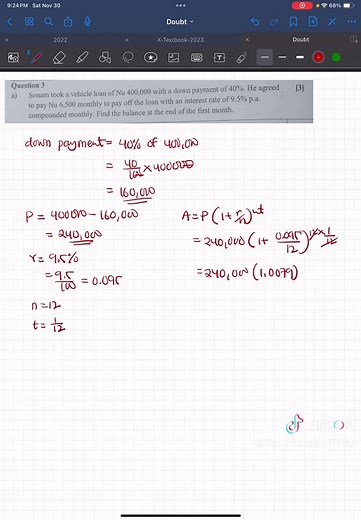 9:24 PM Sat Nov 30
68%
Doubt
2022
X-Textbook-2023
Doubt
Question 3
a) Sonam took a vehicle loan of Nu 400,000 with a down payment of 40%. He agreed [3]
to pay Nu 6,500 monthly to pay off the loan with an interest rate of 9.5% p.a.
compounded monthly. Find the balance at the end of the first month.
down payment = 40% of 400,000
= 40/100 × 400000
= 160,000
P = 400000 - 160,000
= 240,000
r = 9.5%
= 9.5/100 = 0.095
n = 12
t = 1/12
A = P (1 + r/n)^nt
= 240,000 (1 + 0.095/12)^12×1/12
= 240,000 (1.0079)